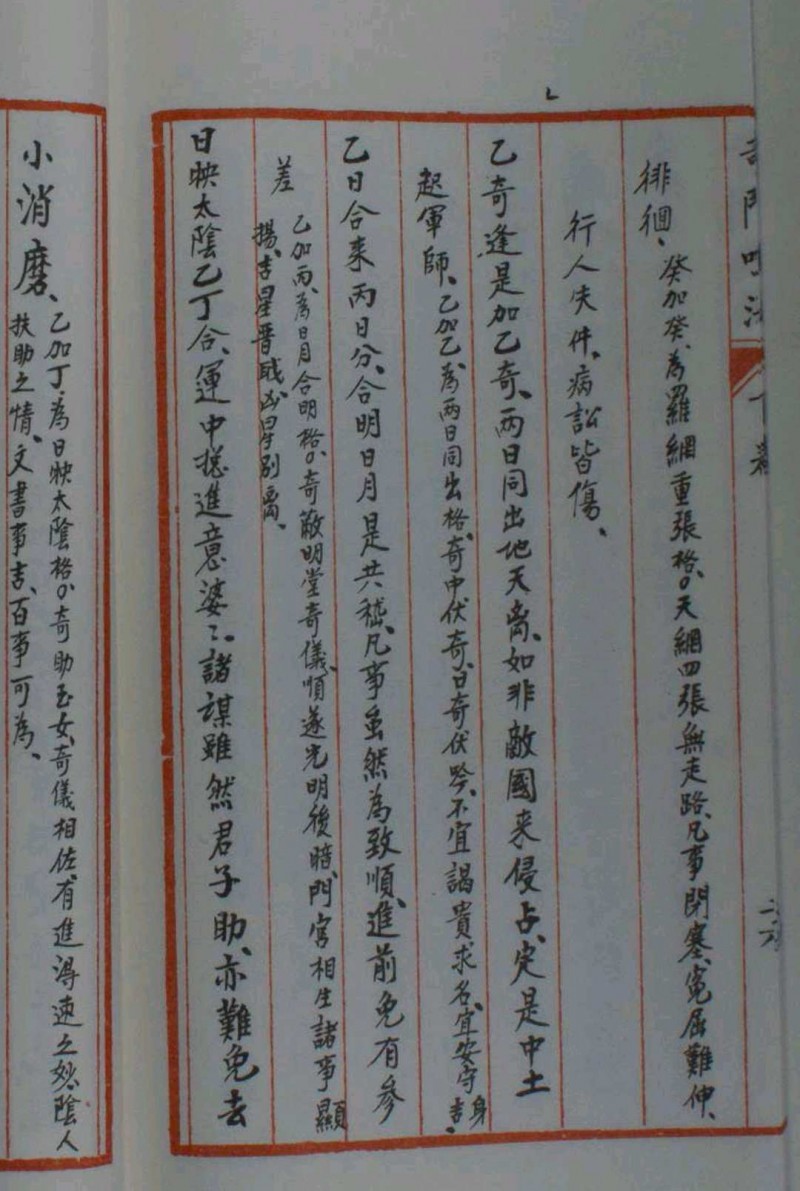 徘徊、癸加癸、為羅網重張格。天網四張無走路、凡事閉塞、冤屈難伸、
行人失件、病訟皆傷、
乙奇逢是加乙奇、兩日同出地天离、如非敵國來侵占、定是中土
起軍師、乙加乙、為兩日同出格、奇中伏奇、日奇伏吟、不宜謁貴求名、宜安守身吉、
乙日合來丙日分、合明日月是共嵇、凡事虽然為致順、進前免有參
差
乙加丙、為日月合明格。奇蔽明堂奇儀順遂光明後暗、門宮相生諸事顯
揚、吉星晋戢凶星別离、
日映太陰乙丁合、運中捴進意婆〻、諸謀雖然君子助、亦難免去
小消磨、
乙加丁、為日映太陰格。奇助玉女、奇儀相佐、有進淂速之妙、陰人
扶助之情、文書事吉、百事可為、